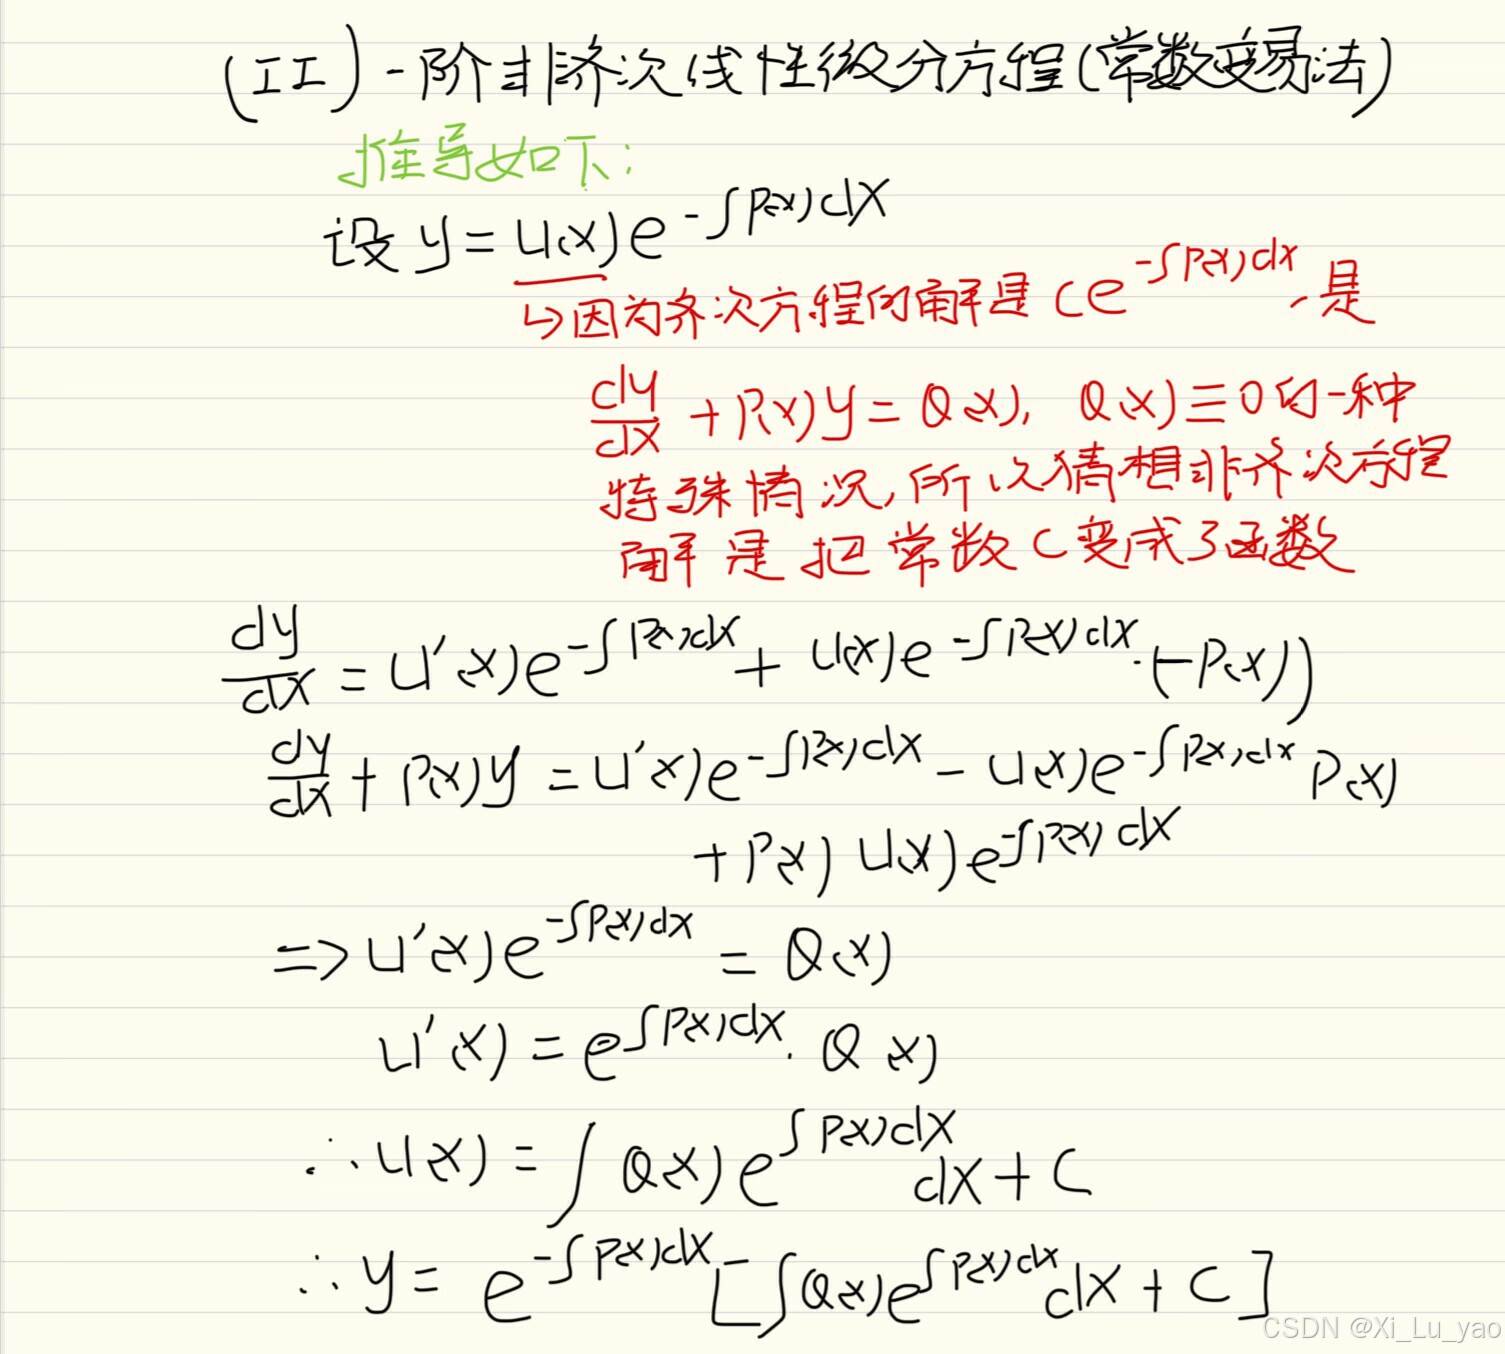 (II)一阶非济次线性微分方程(常数变易法)
推导如下:
设 y = u(x)e^{-∫P(x)dx}
↳因为齐次方程的解是 Ce^{-∫P(x)dx}, 是
dy/dx + P(x)y = Q(x), Q(x)≡0的一种
特殊情况,所以猜想非齐次方程
解是把常数C变成了函数
dy/dx = u'(x)e^{-∫P(x)dx} + u(x)e^{-∫P(x)dx}·(-P(x))
dy/dx + P(x)y = u'(x)e^{-∫P(x)dx} - u(x)e^{-∫P(x)dx} P(x)
+ P(x) u(x)e^{-∫P(x)dx}
=> u'(x)e^{-∫P(x)dx} = Q(x)
u'(x) = e^{∫P(x)dx}·Q(x)
∴u(x) = ∫Q(x)e^{∫P(x)dx}dx + C
∴y = e^{-∫P(x)dx}[∫Q(x)e^{∫P(x)dx}dx + C]
CSDN @Xi_Lu_yao